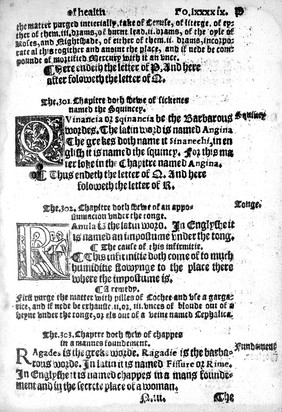 of health Fo, lxxxx ix. P
the matter purged interially, take of Ceruse, of literge, of ey-
ther of them. iii, drams, of burnt lead. ii. drams, of the oyle of
Roses, and Nightshade, of either of them. ii. drams, incorpo-
rate al this together and anoint the place, and if nede be com-
pounde of mortified Mercury with it an vnce.
There endeth the letter of P. And here
after foloweth the letter of Q.
The .301. Chapitre doth shewe of sickenes
named the Squincy.
Squincy
Quinancia or Sqinancia be the Barbarous
wordes. The latin word is named Angina
The grekes doth name it Sinanechi, in en
glish it is named the squincy. For this ma
ter loke in the Chapitre named Angina.
Thus endeth the letter of Q. And here
foloweth the letter of R.
The .302. Chapitre doth shewe of an appo-
stumacion under the tonge.
Tonge.
Ranula is the latin word. In Englyshe it
is named an impostume under the tong.
The cause of this infirmitie.
This infirmitie doth come of to much
humiditie flowynge to the place there
where the impostume is.
A remedy.
First purge the matter with pilles of Cochee and use a garga-
rice, and if nede be exhaust ii, oz; iii. vnces of bloude out of a
veyne under the tonge, or els out of a veine named Cephalica.
The .303. Chapitre doth shewe of chappes
in a mannes foundement.
Fundament
Ragades is the greke worde. Ragadie is the barba-
rous worde. In latin it is named Fissure or Rime.
In Englyshe it is named chappes in a mans founde-
ment and in the secrete place of a woman.
N.iii. The